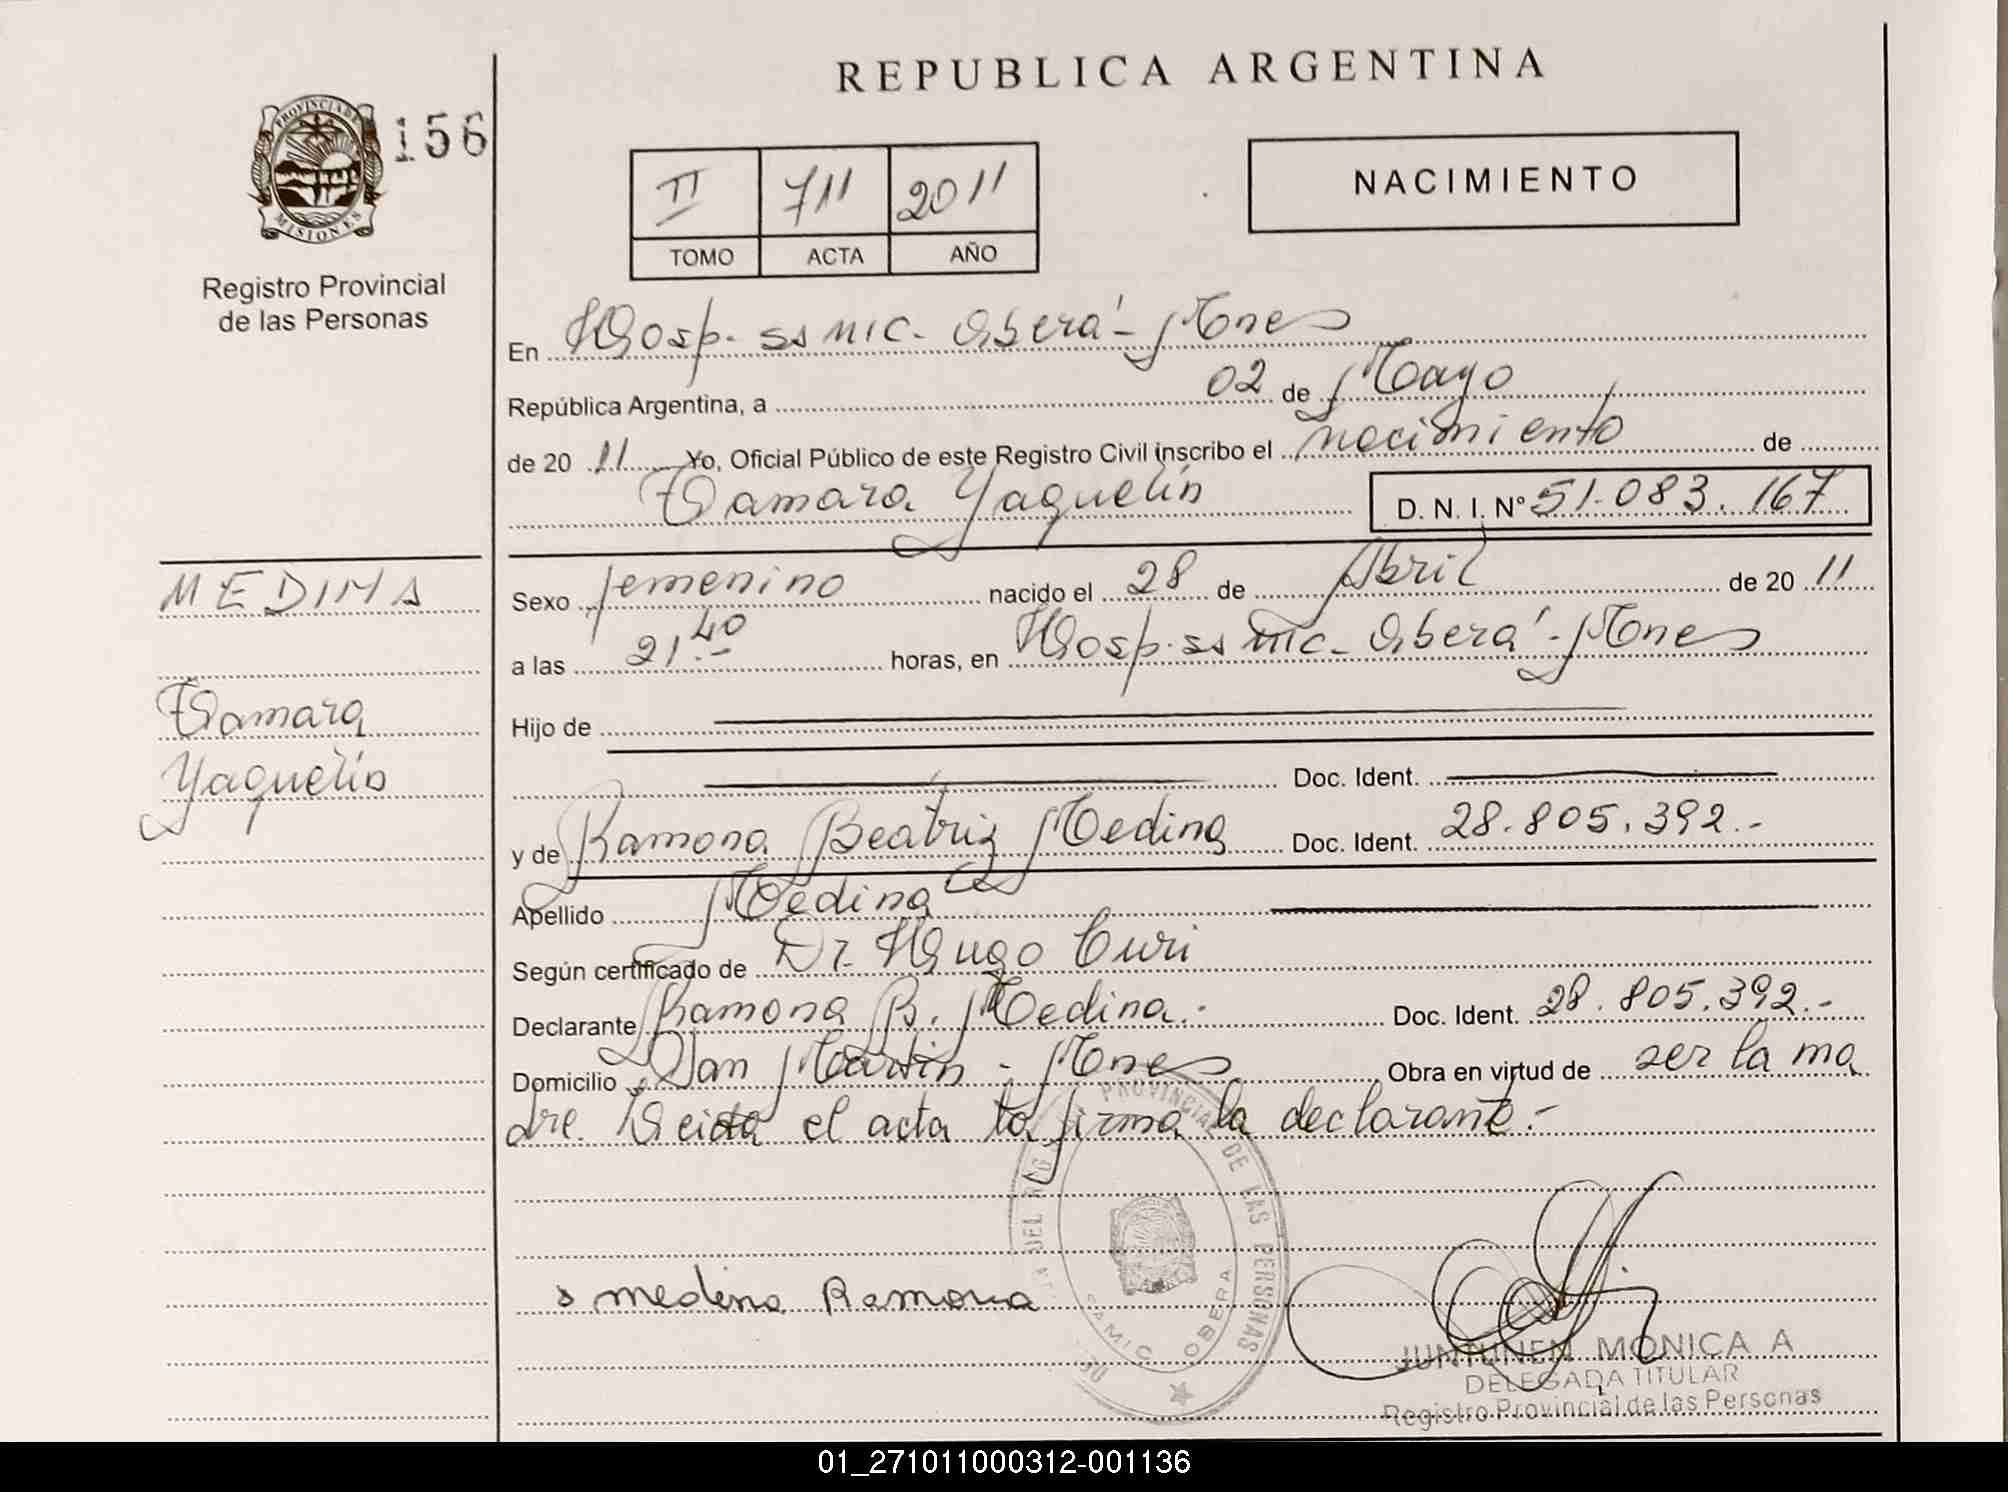 REPUBLICA ARGENTINA
PROVINCIA DE
MISIONES
156
Registro Provincial
de las Personas
II 711 2011
TOMO ACTA AÑO
NACIMIENTO
En Hosp. ss mic - Oberá - Mnes
República Argentina, a 02 de Mayo
de 20 11 Yo, Oficial Público de este Registro Civil inscribo el nacimiento de
Tamara Yaquelin D. N. I. Nº 51.083.167
MEDINA
Tamara
Yaquelin
Sexo femenino nacido el 28 de Abril de 20 11
a las 21.40 horas, en Hosp. ss mic - Oberá - Mnes
Hijo de
Doc. Ident.
y de Ramona Beatriz Medina Doc. Ident. 28.805.392.-
Apellido Medina
Según certificado de Dr. Hugo Curi
Declarante Ramona B. Medina.- Doc. Ident. 28.805.392.-
Domicilio San Martin - Mnes Obra en virtud de ser la ma
dre. Leida el acta la firma la declarante.-
PROVINCIAL DE LAS PERSONAS
SAMIC OBERA
medina Ramona
JUNTUNEN MONICA A
DELEGADA TITULAR
Registro Provincial de las Personas
01_271011000312-001136